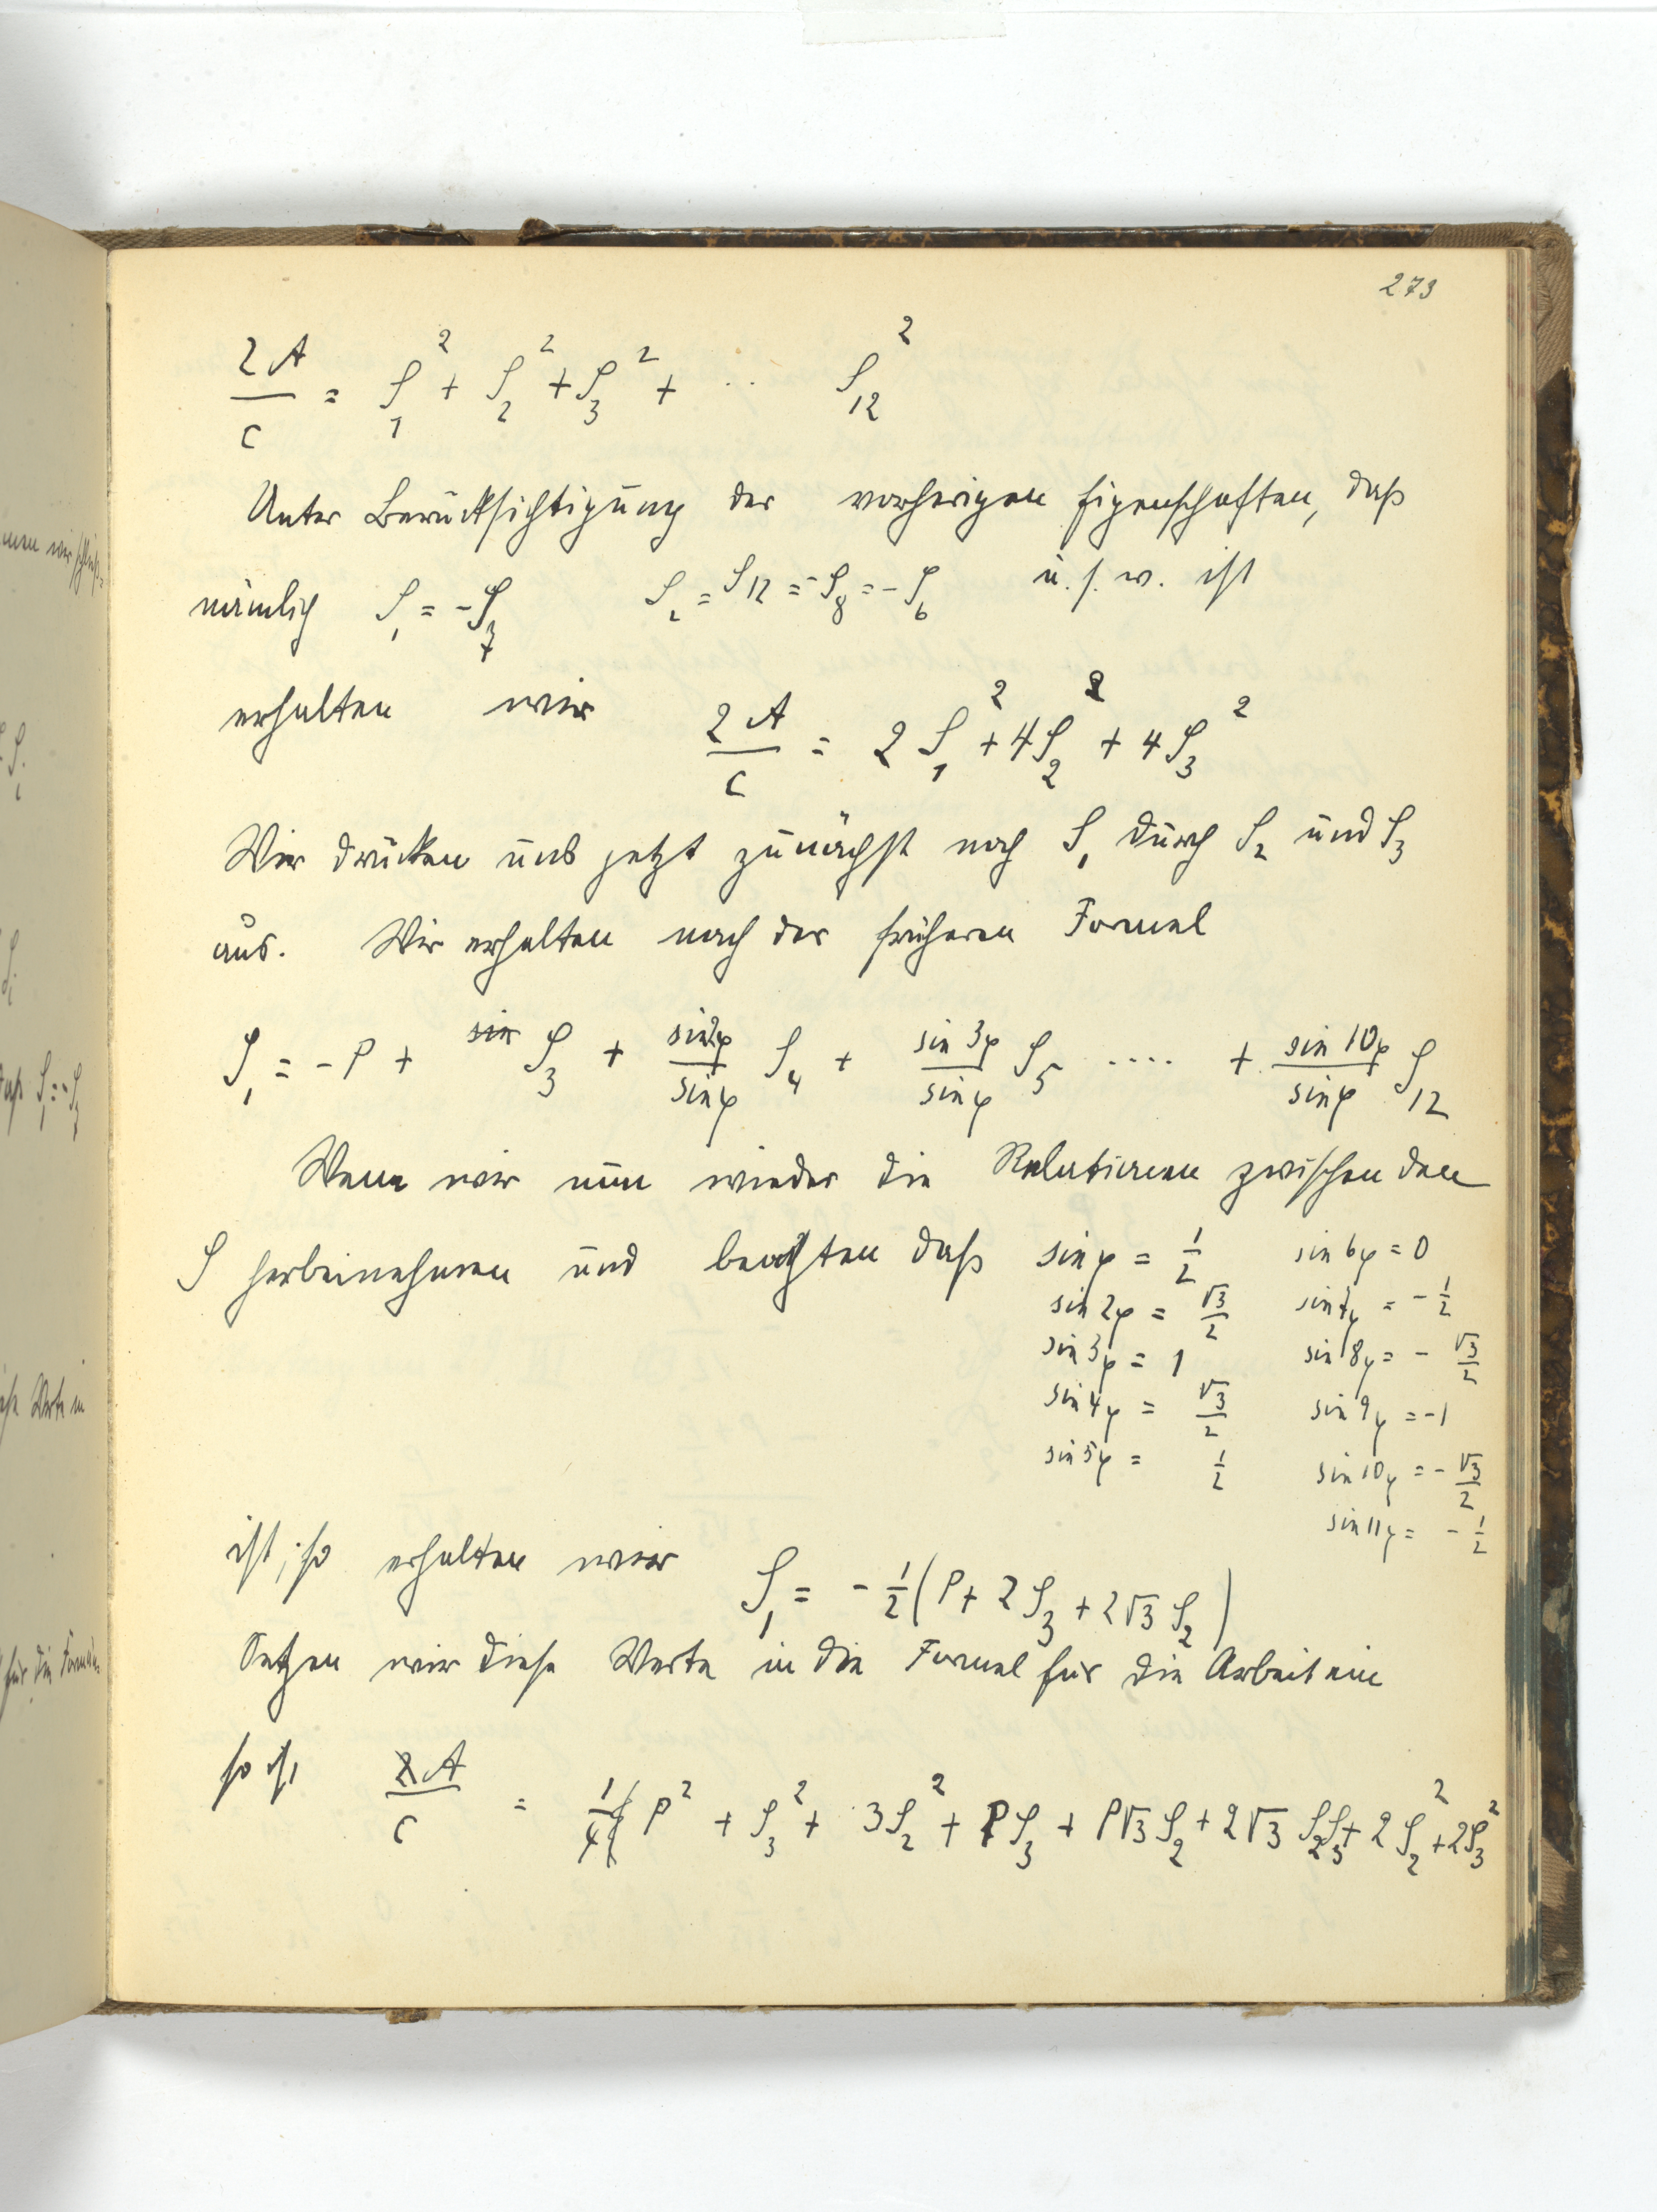 273
2A/c = S₁² + S₂² + S₃² + .. S₁₂²
Unter Berücksichtigung der vorherigen Eigenschaften, daß
nämlich S₁ = -S₇ S₂ = S₁₂ = -S₈ = -S₆ u. s. w. ist
erhalten wir 2A/c = 2S₁² + 4S₂² + 4S₃²
Wir drücken uns jetzt zunächst noch S₁ durch S₂ und S₃
aus. Wir erhalten nach der früheren Formel
S₁ = -P + S₃ + sin2φ/sinφ S₄ + sin 3φ/sinφ S₅ .... + sin 10φ/sinφ S₁₂
Wenn wir nun wieder die Relationen zwischen den
S herbeinehmen und beachten daß sin φ = 1/2 sin 6φ = 0
sin 2φ = √3/2 sin 7φ = -1/2
sin 3φ = 1 sin 8φ = -√3/2
sin 4φ = √3/2 sin 9φ = -1
sin 5φ = 1/2 sin 10φ = -√3/2
sin 11φ = -1/2
ist, so erhalten wir S₁ = -1/2 (P + 2S₃ + 2√3 S₂)
Setzen wir diese Werte in die Formel für die Arbeit ein
so ist A/c = 1/4 P² + S₃² + 3S₂² + PS₃ + P√3 S₂ + 2√3 S₂S₃ + 2S₂² + 2S₃²